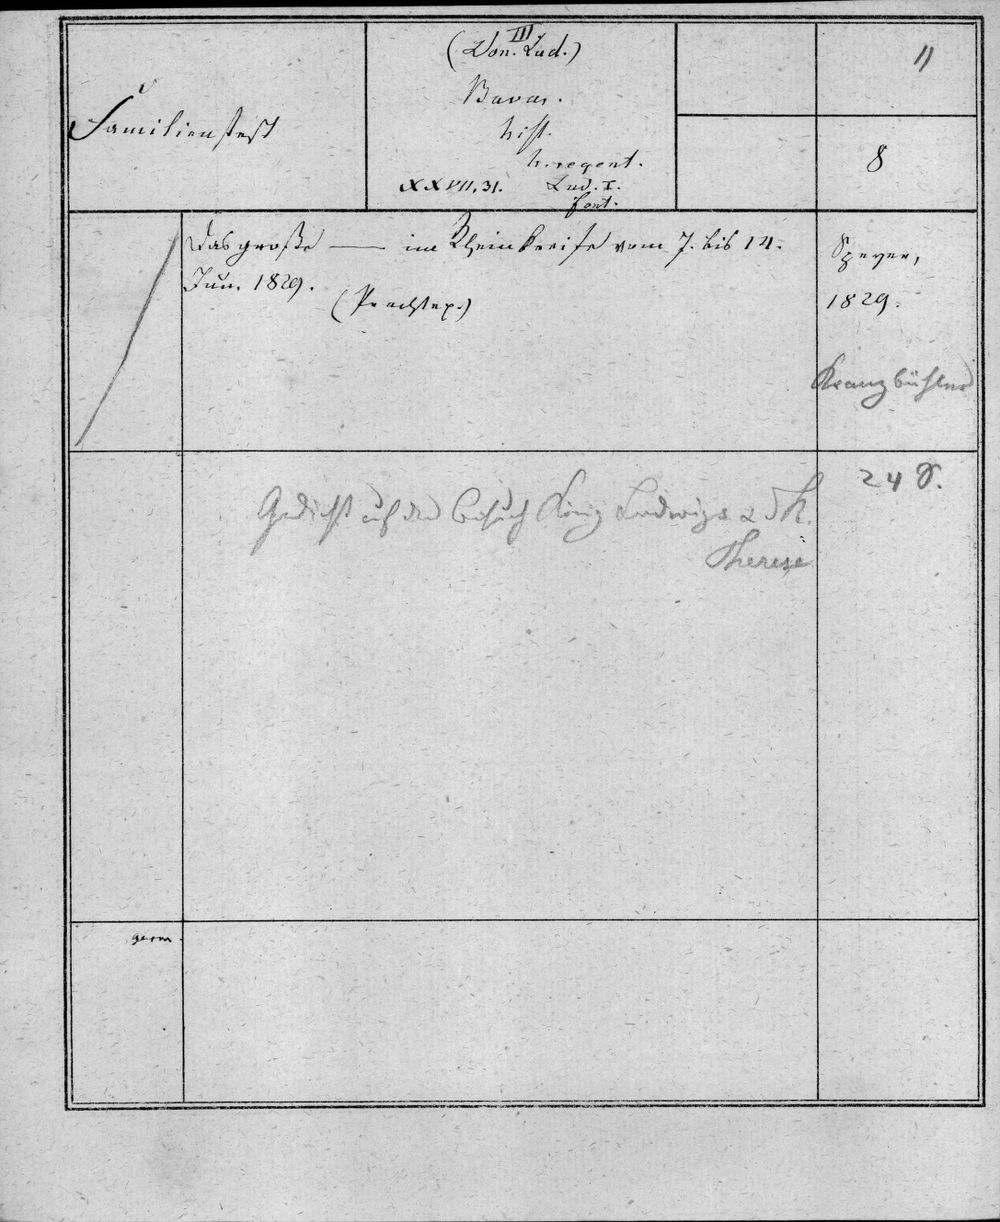 Familienfest
III
(Don. Lud.)
Bavar.
hist.
h. regent.
XXVII, 31. Lud. I.
font.
11
8
Das große —— im Rheinkreise vom 7. bis 14.
Jun. 1829.
(Prachtex.)
Speyer,
1829.
Kranzbühler
24 S.
Gedicht auf den Besuch König Ludwigs u. Th.
Therese
germ.